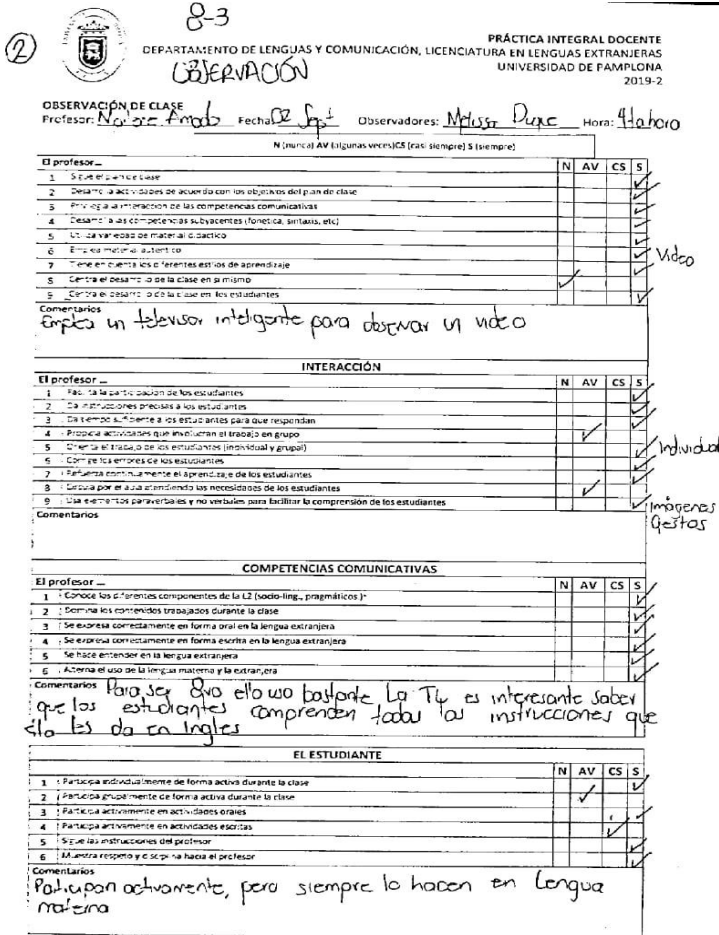 8-3
②
PRÁCTICA INTEGRAL DOCENTE
DEPARTAMENTO DE LENGUAS Y COMUNICACIÓN, LICENCIATURA EN LENGUAS EXTRANJERAS
UNIVERSIDAD DE PAMPLONA
2019-2
OBSERVACIÓN
OBSERVACIÓN DE CLASE
Profesor: Fecha: 02 Sept Observadores: Hora: 4ta hora
N (nunca) AV (algunas veces) CS (casi siempre) S (siempre)
El profesor... N AV CS S
1 Sigue el plan de clase ✓
2 Desarrolla actividades de acuerdo con los objetivos del plan de clase ✓
3 Privilegia la interacción de las competencias comunicativas ✓
4 Desarrolla las competencias subyacentes (fonética, sintaxis, etc) ✓
5 Utiliza variedad de material didáctico ✓
6 Emplea material auténtico ✓ Video
7 Tiene en cuenta los diferentes estilos de aprendizaje ✓
8 Centra el desarrollo de la clase en si mismo ✓
9 Centra el desarrollo de la clase en los estudiantes ✓
Comentarios
Emplea un televisor inteligente para observar un video
INTERACCIÓN
El profesor ... N AV CS S
1 Facilita la participación de los estudiantes ✓
2 Da instrucciones precisas a los estudiantes ✓
3 Da tiempo suficiente a los estudiantes para que respondan ✓
4 Propicia actividades que involucran el trabajo en grupo ✓
5 Orienta el trabajo de los estudiantes (individual y grupal) ✓ Individual
6 Corrige los errores de los estudiantes ✓
7 Refuerza continuamente el aprendizaje de los estudiantes ✓
8 Circula por el aula atendiendo las necesidades de los estudiantes ✓
9 Usa elementos paraverbales y no verbales para facilitar la comprensión de los estudiantes ✓ Imágenes
Gestos
Comentarios
COMPETENCIAS COMUNICATIVAS
El profesor ... N AV CS S
1 Conoce los diferentes componentes de la L2 (socio-ling., pragmáticos.)* ✓
2 Domina los contenidos trabajados durante la clase ✓
3 Se expresa correctamente en forma oral en la lengua extranjera ✓
4 Se expresa correctamente en forma escrita en la lengua extranjera ✓
5 Se hace entender en la lengua extranjera ✓
6 Alterna el uso de la lengua materna y la extranjera ✓
Comentarios Para ser 8vo ella usa bastante La TL es interesante saber
que los estudiantes comprenden todas las instrucciones que
ella les da en Ingles
EL ESTUDIANTE
N AV CS S
1 Participa individualmente de forma activa durante la clase ✓
2 Participa grupalmente de forma activa durante la clase ✓
3 Participa activamente en actividades orales ✓
4 Participa activamente en actividades escritas ✓
5 Sigue las instrucciones del profesor ✓
6 Muestra respeto y disciplina hacia el profesor ✓
Comentarios
Participan activamente, pero siempre lo hacen en Lengua
materna